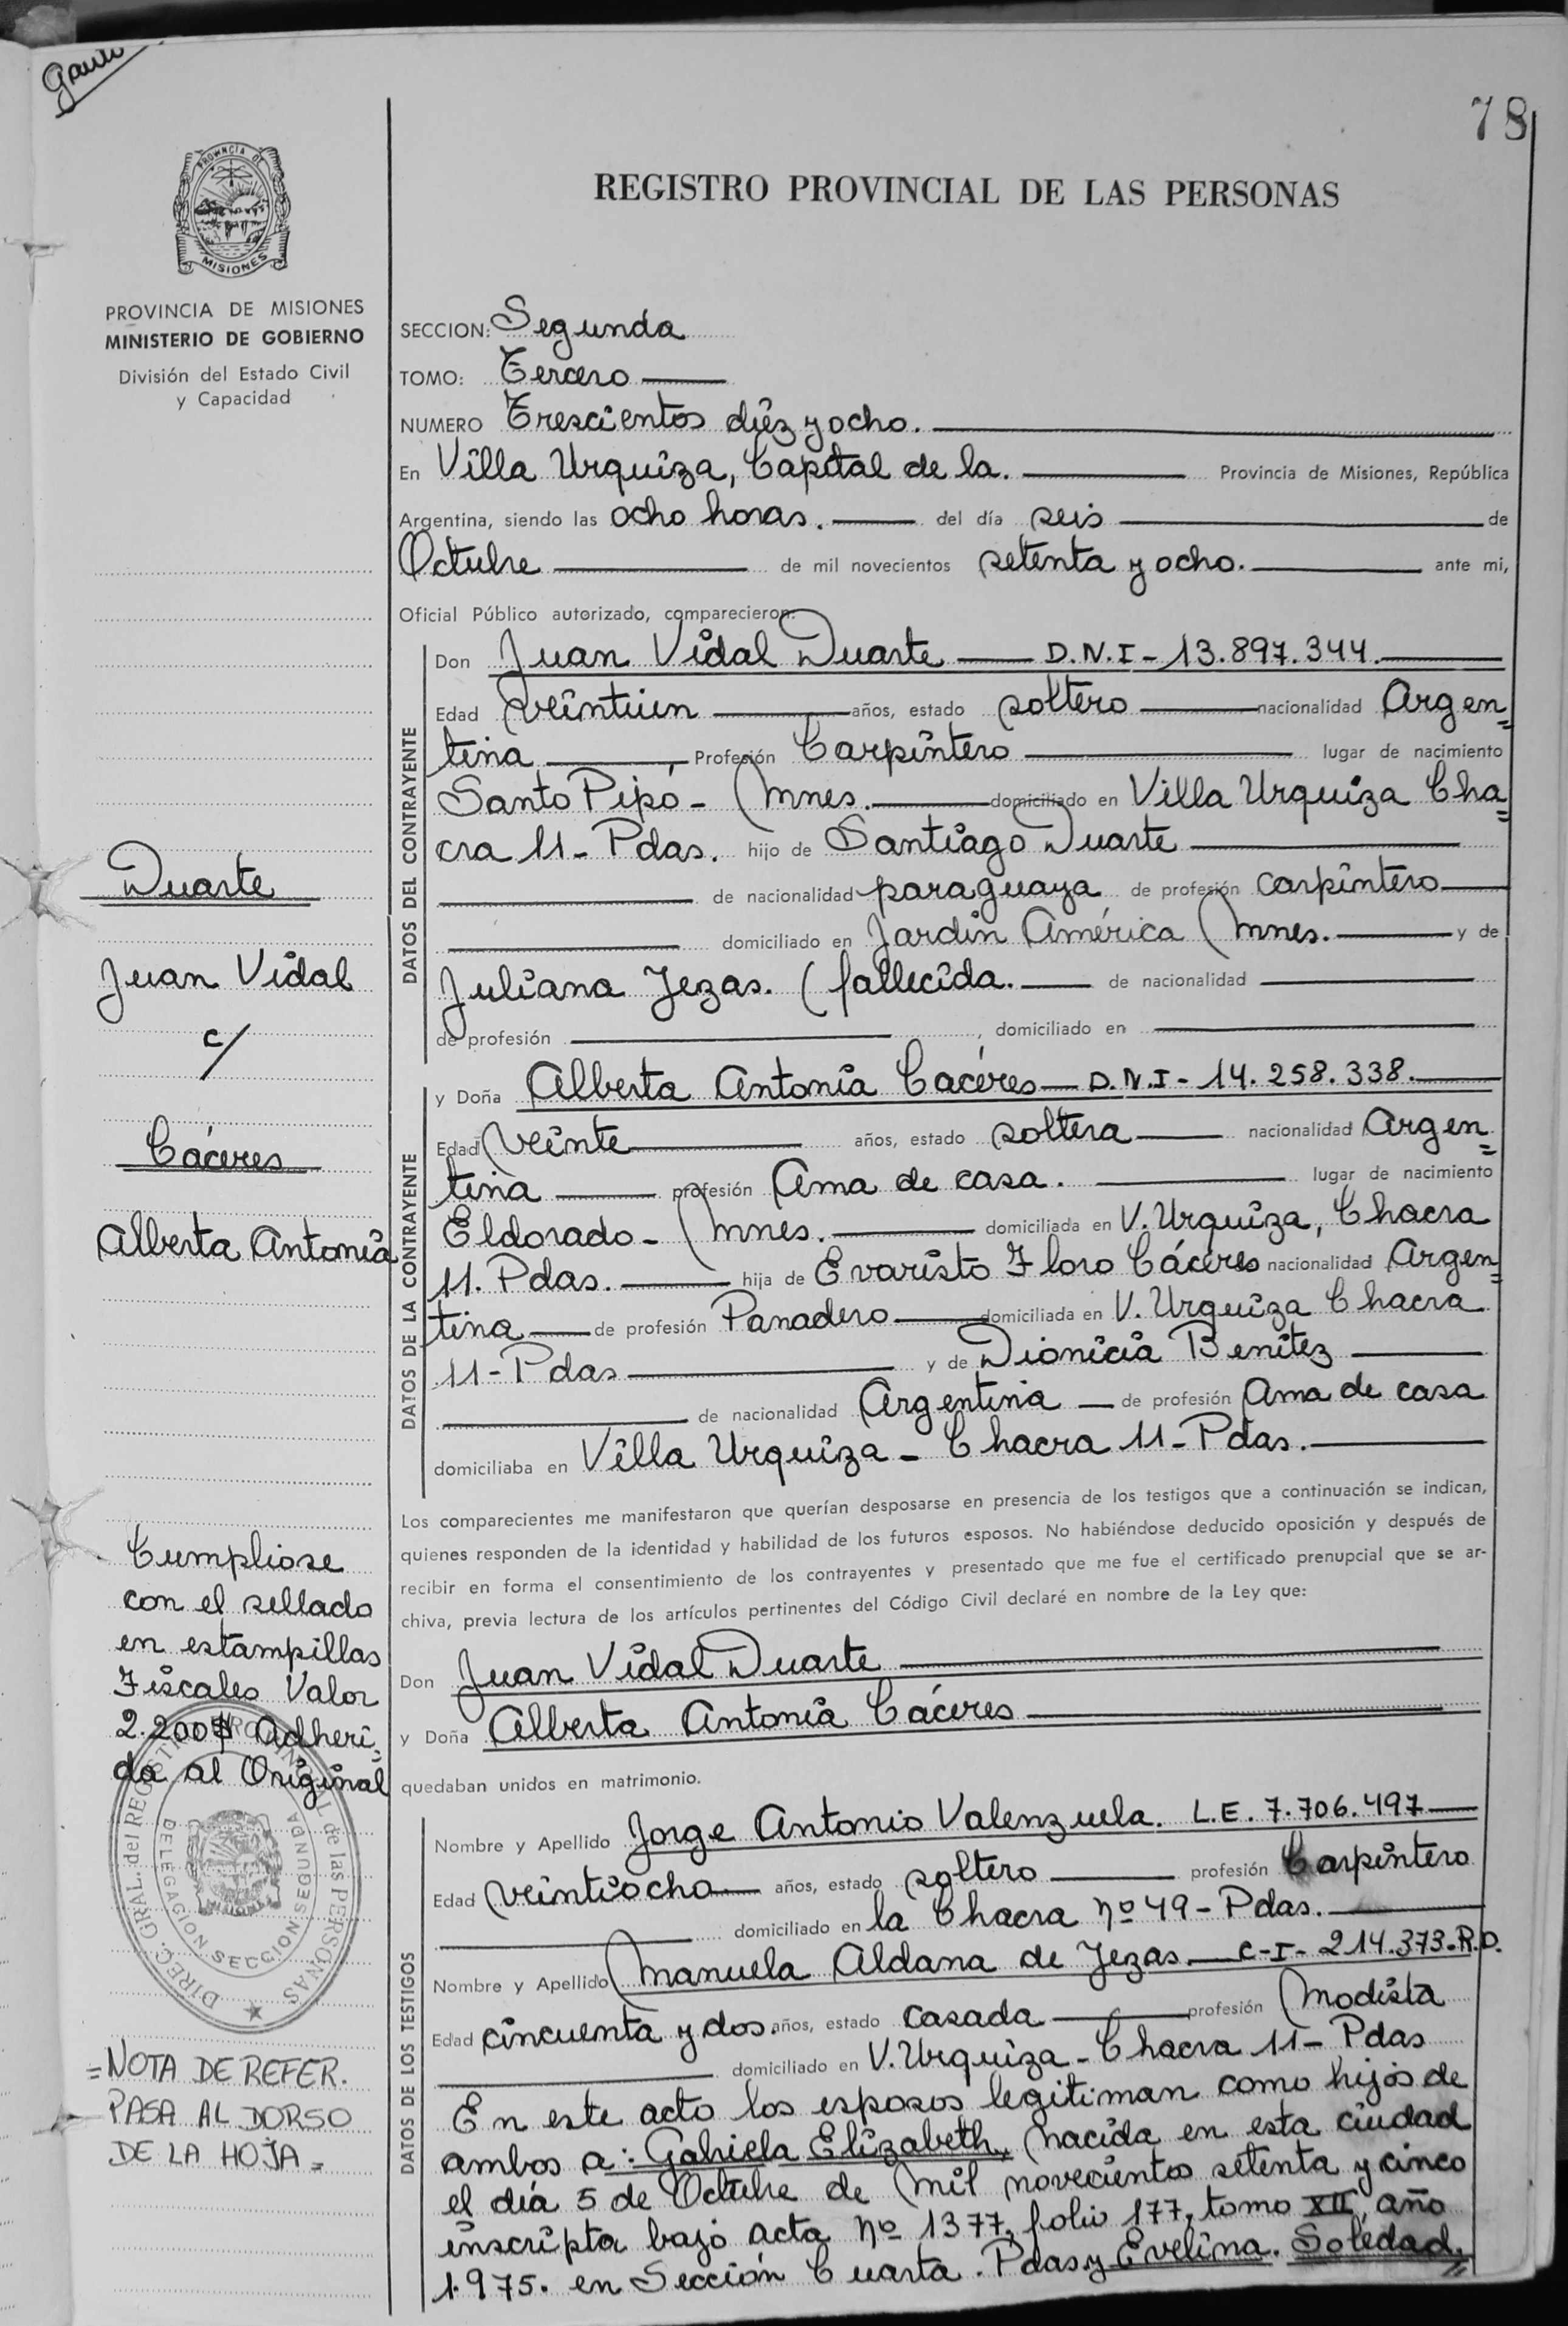 78
PROVINCIA DE
MISIONES
PROVINCIA DE MISIONES
MINISTERIO DE GOBIERNO
División del Estado Civil
y Capacidad
REGISTRO PROVINCIAL DE LAS PERSONAS
SECCION: Segunda
TOMO: Tercero
NUMERO Trescientos diéz y ocho.
En Villa Urquiza, Capital de la. Provincia de Misiones, República
Argentina, siendo las ocho horas. del día seis de
Octubre de mil novecientos setenta y ocho. ante mi,
Oficial Público autorizado, comparecieron:
DATOS DEL CONTRAYENTE
Don Juan Vidal Duarte D.N.I - 13.897.344.
Edad Veintiún años, estado soltero nacionalidad Argen=
tina Profesión Carpintero lugar de nacimiento
Santo Pipó - Mnes. domiciliado en Villa Urquiza Cha=
cra 11 - Pdas. hijo de Santiago Duarte
de nacionalidad paraguaya de profesión carpintero
domiciliado en Jardín América Mnes. y de
Juliana Jezas. (fallecida. de nacionalidad
de profesión , domiciliado en
DATOS DE LA CONTRAYENTE
y Doña Alberta Antonia Cáceres D.N.I - 14.258.338.
Edad Veinte años, estado soltera nacionalidad Argen=
tina profesión Ama de casa. lugar de nacimiento
Eldorado - Mnes. domiciliada en V. Urquiza, Chacra
11. Pdas. hija de Evaristo Floro Cáceres nacionalidad Argen=
tina de profesión Panadero domiciliada en V. Urquiza Chacra
11 - Pdas y de Dionicia Benitez
de nacionalidad Argentina de profesión Ama de casa
domiciliaba en Villa Urquiza - Chacra 11 - Pdas.
Los comparecientes me manifestaron que querían desposarse en presencia de los testigos que a continuación se indican,
quienes responden de la identidad y habilidad de los futuros esposos. No habiéndose deducido oposición y después de
recibir en forma el consentimiento de los contrayentes y presentado que me fue el certificado prenupcial que se ar-
chiva, previa lectura de los artículos pertinentes del Código Civil declaré en nombre de la Ley que:
Don Juan Vidal Duarte
y Doña Alberta Antonia Cáceres
quedaban unidos en matrimonio.
DATOS DE LOS TESTIGOS
Nombre y Apellido Jorge Antonio Valenzuela. L.E. 7.706.497
Edad Veintiocho años, estado soltero profesión Carpintero
domiciliado en la Chacra nº 49 - Pdas.
Nombre y Apellido Manuela Aldana de Jezas. C-I- 214.373.R.P.
Edad cincuenta y dos. años, estado casada profesión Modista
domiciliado en V. Urquiza - Chacra 11 - Pdas
En este acto los esposos legitiman como hijos de
ambos a: Gabriela Elizabeth, nacida en esta ciudad
el día 5 de Octubre de mil novecientos setenta y cinco
inscripta bajo acta nº 1377, folio 177, tomo XII, año
1.975. en Sección Cuarta. Pdas y Evelina. Soledad.=
Duarte
Juan Vidal
c/
Cáceres
Alberta Antonia
Cumpliose
con el sellado
en estampillas
Fiscales Valor
2.200$ Adheri=
da al Original
DIREC. GRAL. del REGISTRO PROVINCIAL de las PERSONAS
DELEGACION SECCION SEGUNDA
=NOTA DE REFER.
PASA AL DORSO
DE LA HOJA=